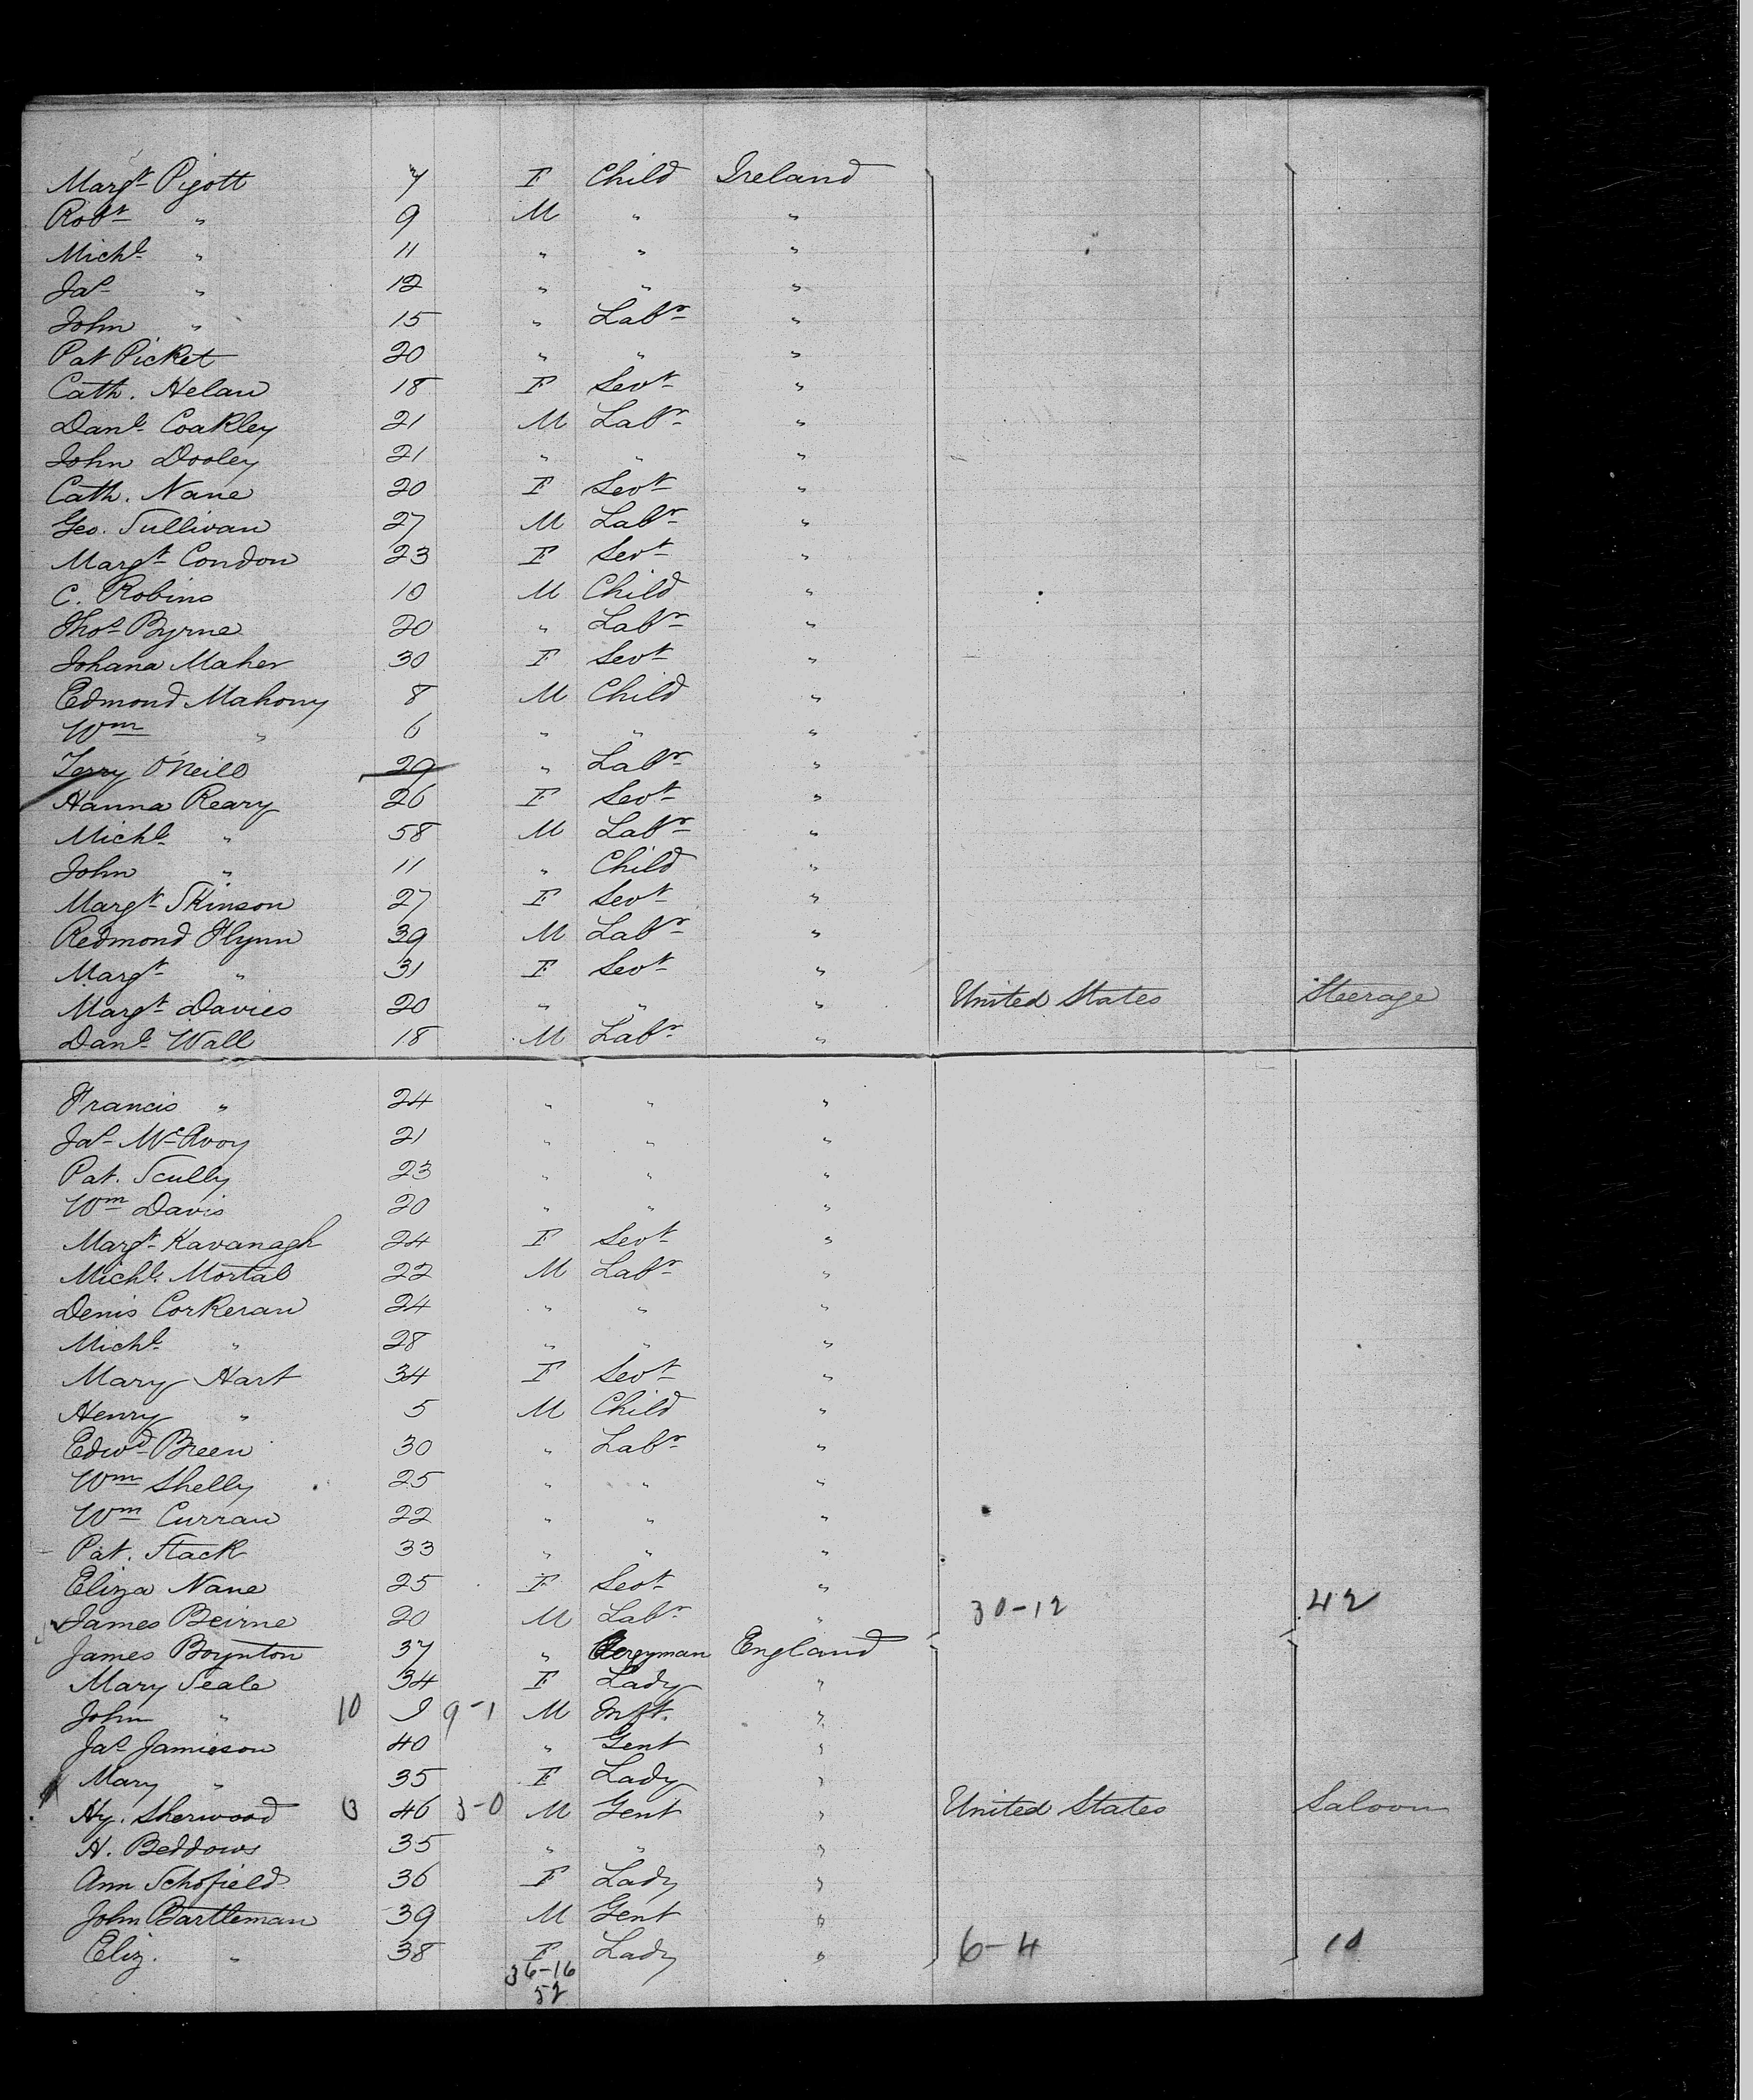 Margt Pigott 7 F Child Ireland
Robt " 9 M " "
Michl " 11 " " "
Jas " 12 " " "
John " 15 " Labr "
Pat Picket 20 " " "
Cath. Helan 18 F Sevt "
Danl Coakley 21 M Labr "
John Dooley 21 " " "
Cath. Nane 20 F Sevt "
Geo. Sullivan 27 M Labr "
Margt Condon 23 F Sevt "
C. Robins 10 M Child "
Thos Byrne 20 " Labr "
Johana Maher 30 F Sevt "
Edmond Mahony 8 M Child "
Wm " 6 " " "
Terry O'Neill 29 " Labr "
Hanna Reary 26 F Sevt "
Michl " 58 M Labr "
John " 11 " Child "
Margt Skinson 27 F Sevt "
Redmond Flynn 39 M Labr "
Margt " 31 F Sevt "
Margt Davies 20 " " " United States Steerage
Danl Wall 18 M Labr "
Francis " 24 " " "
Jas McAvoy 21 " " "
Pat. Scully 23 " " "
Wm Davis 20 " " "
Margt Kavanagh 24 F Sevt "
Michl Mortal 22 M Labr "
Denis Corkeran 24 " " "
Michl " 28 " " "
Mary Hart 34 F Sevt "
Henry " 5 M Child "
Edwd Breen 30 " Labr "
Wm Shelly 25 " " "
Wm Curran 22 " " "
Pat. Stack 33 " " "
Eliza Nane 25 F Sevt "
James Beirne 20 M Labr " 30-12 42
James Boynton 37 " Clergyman England
Mary Seale 34 F Lady "
John " 10 9-1 M Inft. "
Jas Jamieson 40 " Gent "
Mary " 35 F Lady "
Hy. Sherwood 46 3-0 M Gent " United States Saloon
H. Beddows 35 " " "
Ann Schofield 36 F Lady "
John Bartleman 39 M Gent "
Eliz. " 38 F Lady " 6-4 10
36-16
52